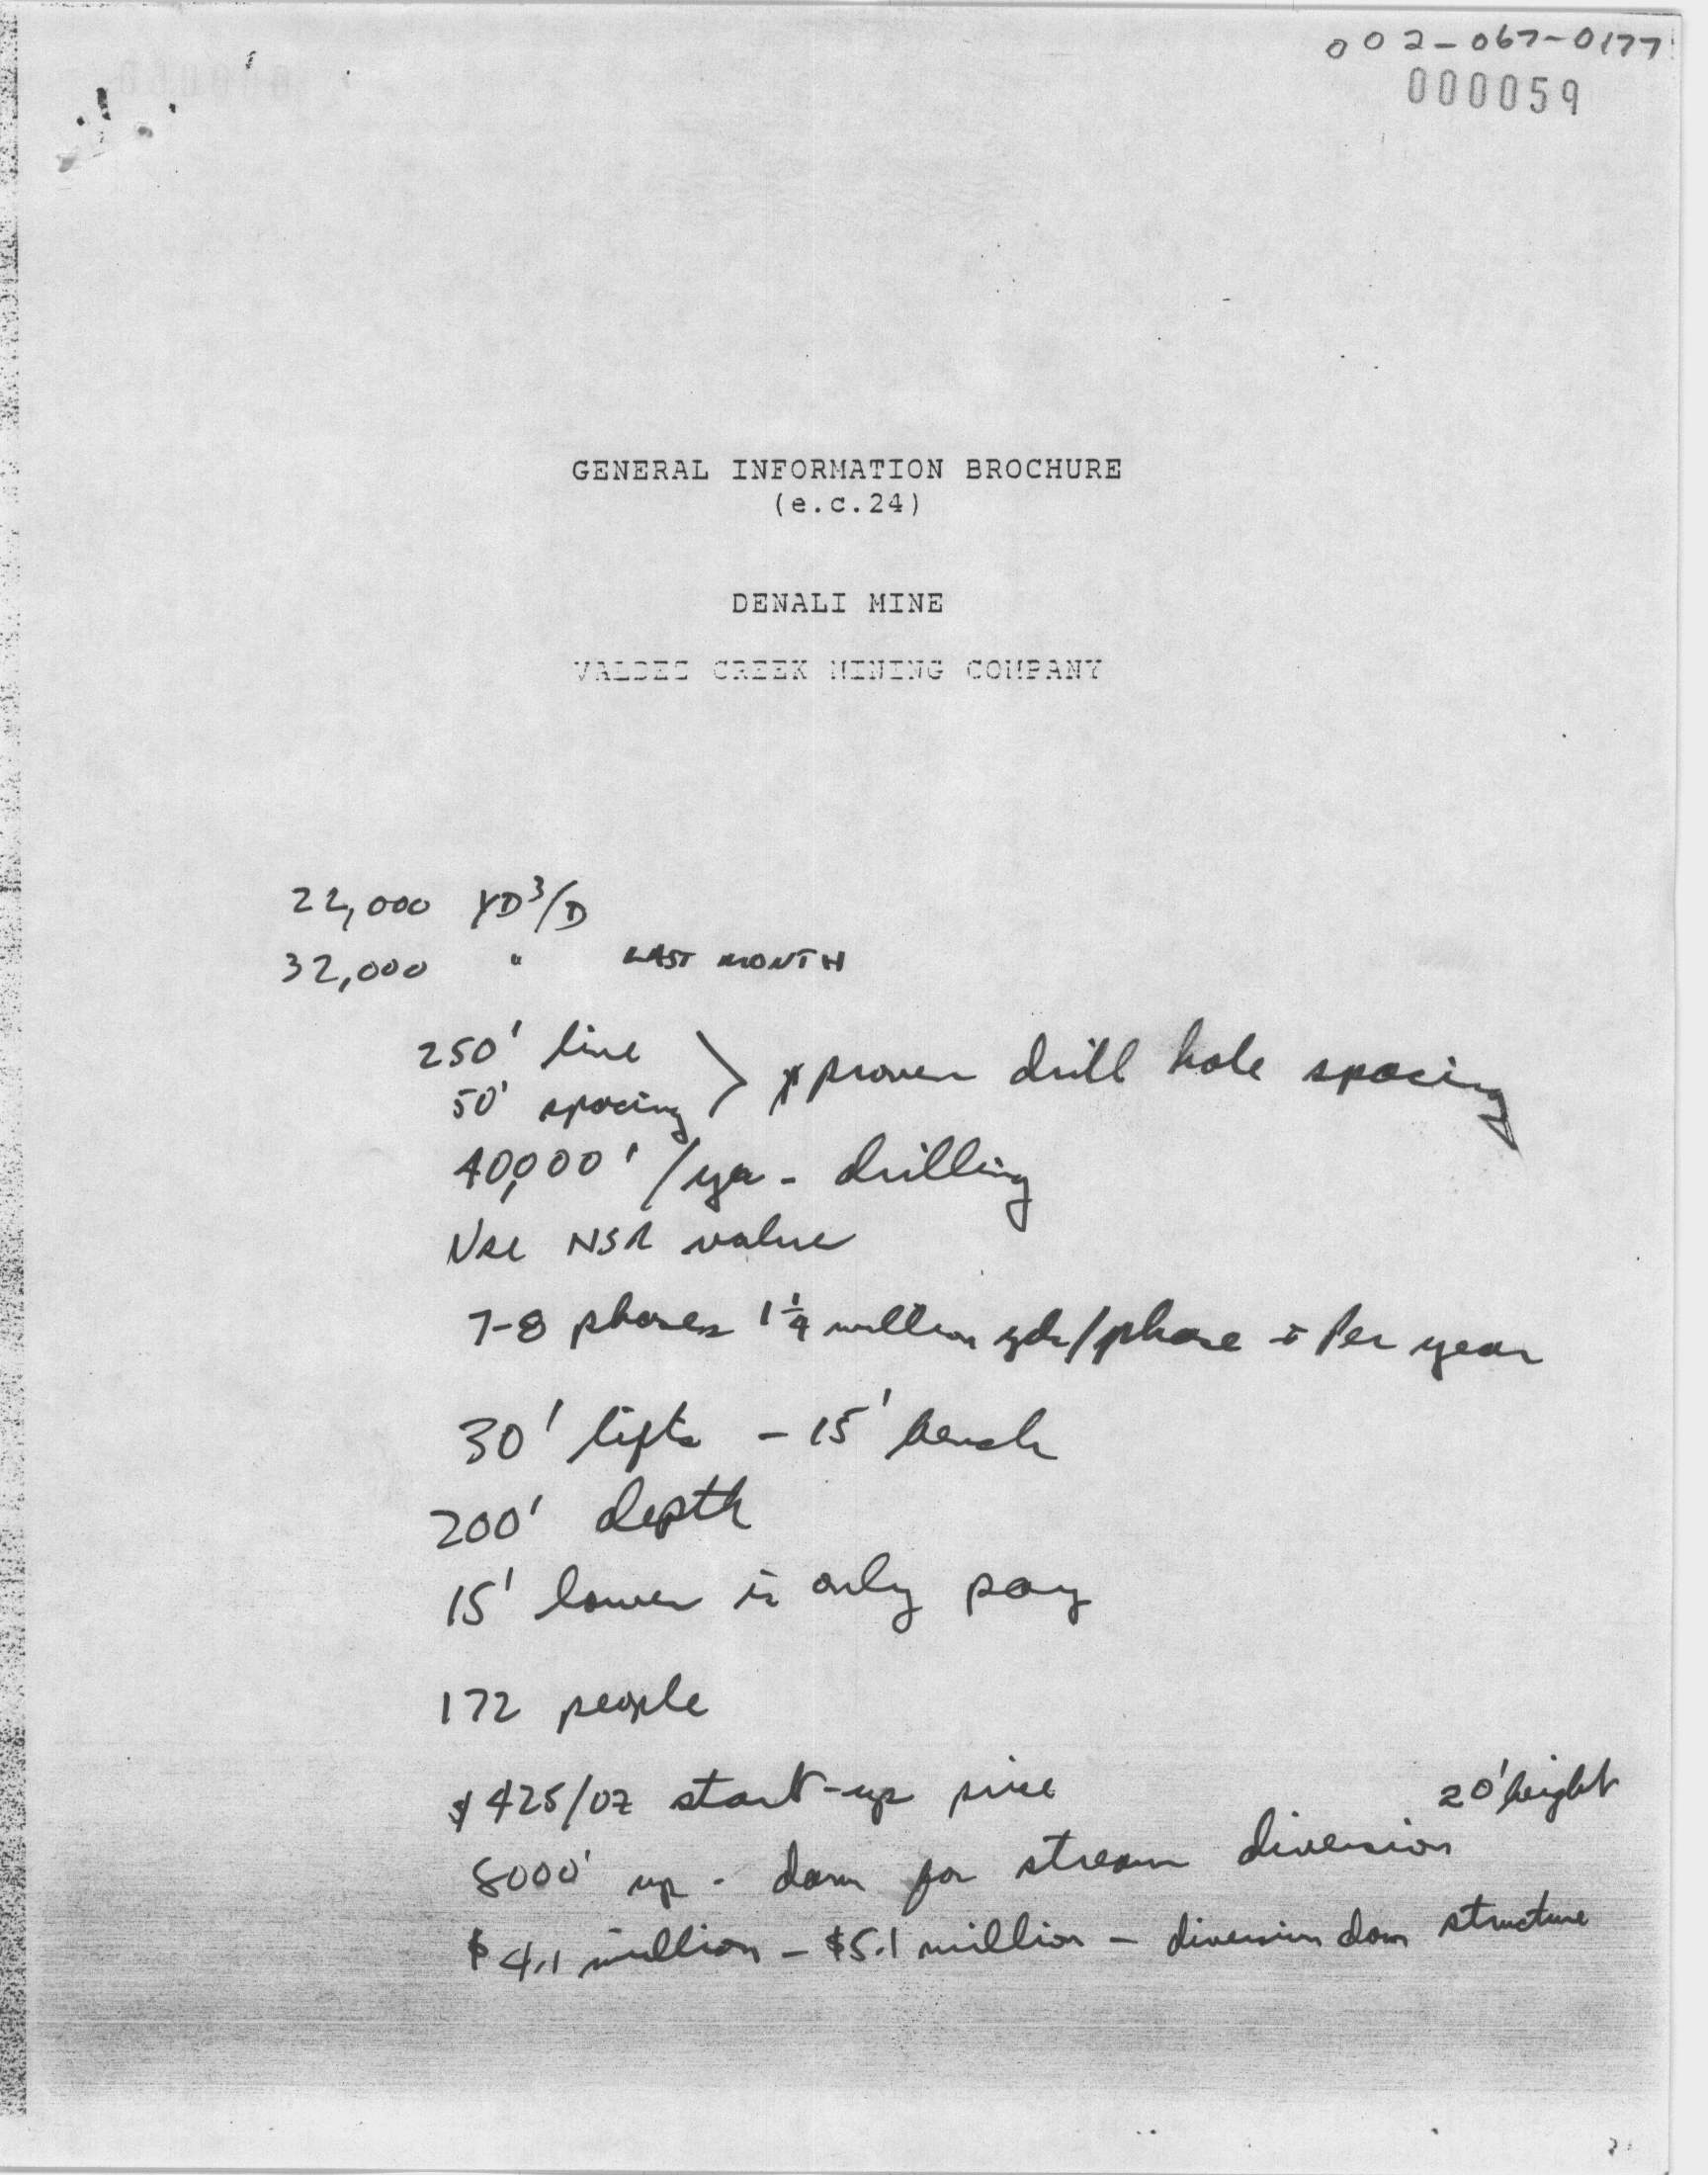 002-067-0177
000059
GENERAL INFORMATION BROCHURE
(e.c.24)
DENALI MINE
VALDEZ CREEK MINING COMPANY
22,000 YD³/D
32,000 " LAST MONTH
250' line
50' spacing > proven drill hole spacing
40,000'/yr - drilling
Use NSR value
7-8 phases 1 1/4 million yds/phase ± Per year
30' lifts - 15' bench
200' depth
15' lower is only pay
172 people
$425/oz start-up price
20' height
8000' up - dam for stream diversion
$4.1 million - $5.1 million - diversion dam structure